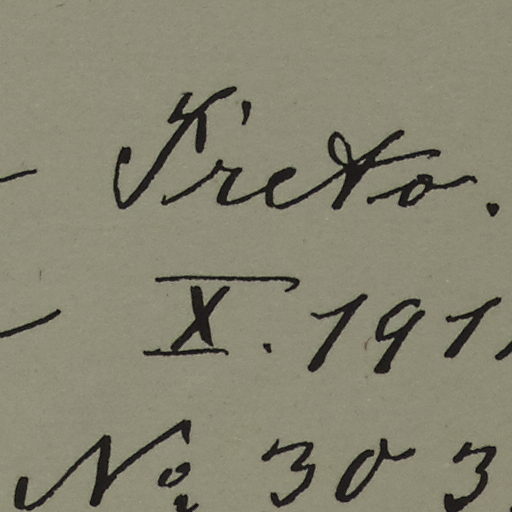 Freto.
X. 191
No 303